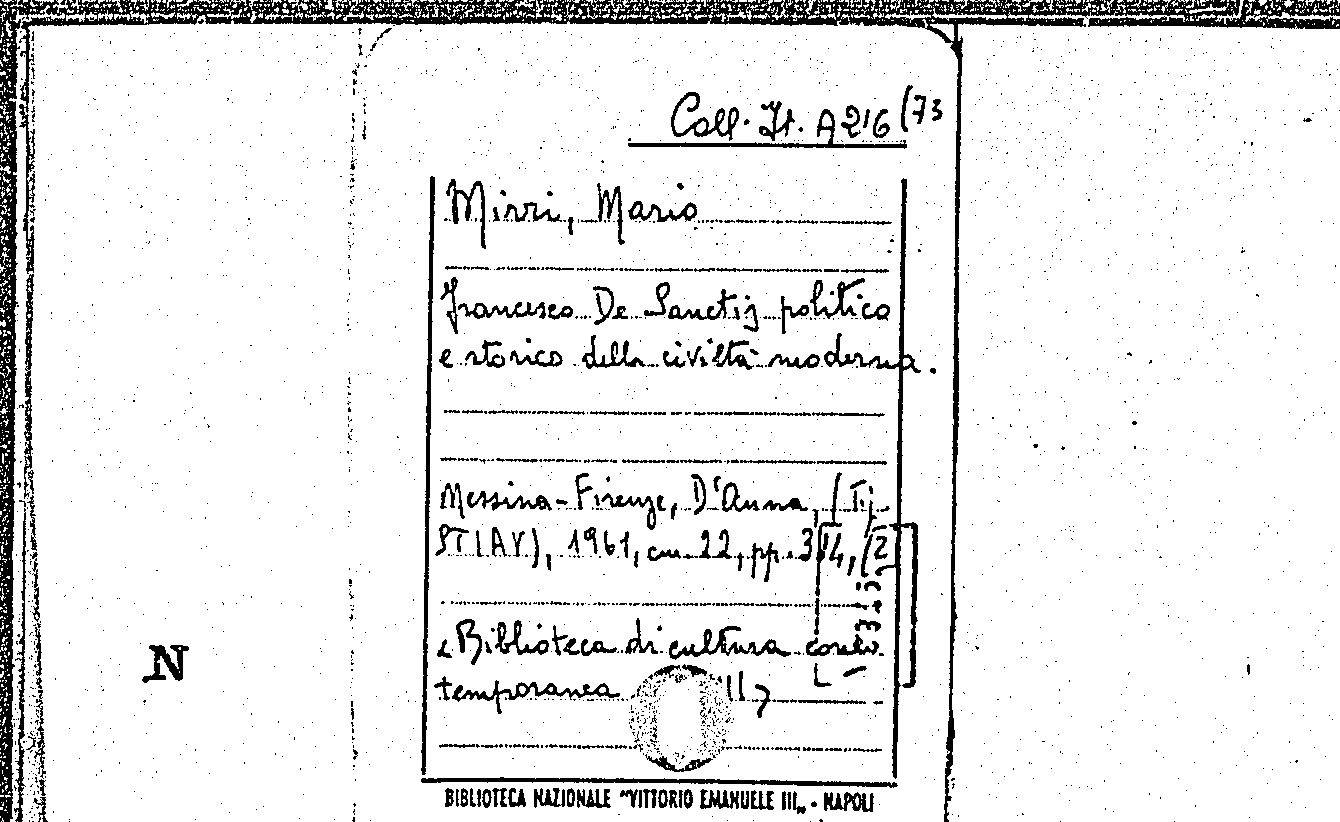 Coll. It. A 216 (73
Mirri, Mario
Francesco De Sanctis politico
e storico della civiltà moderna.
Messina-Firenze, D'Anna, (Tip.
STIAV), 1961, cm. 22, pp. 314, (2
«Biblioteca di cultura con-
temporanea
BIBLIOTECA NAZIONALE "VITTORIO EMANUELE III„ - NAPOLI
N